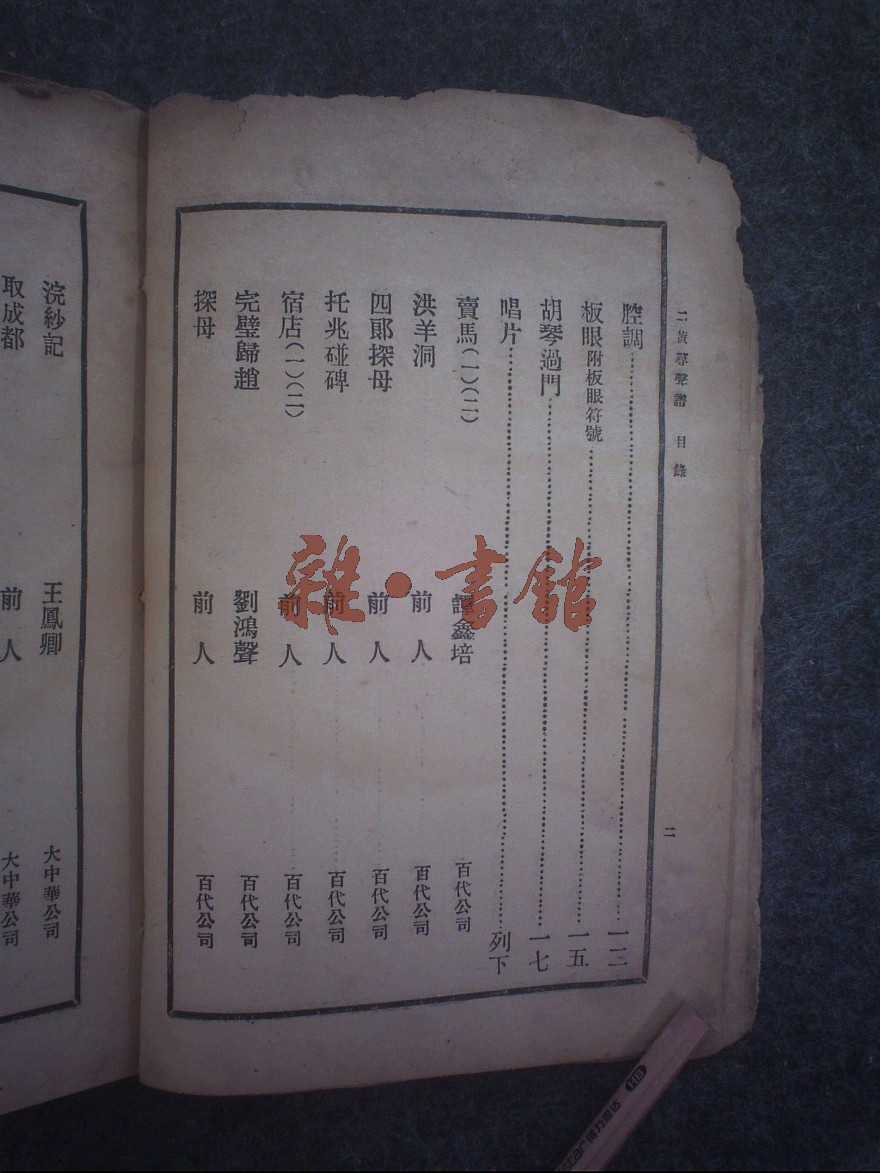 二黃尋聲譜 目錄
二
腔調……一二
板眼附板眼符號……一五
胡琴過門……一七
唱片……列下
賣馬(一)(二) 譚鑫培 百代公司
洪羊洞 前人 百代公司
四郞探母 前人 百代公司
托兆碰碑 前人 百代公司
宿店(一)(二) 前人 百代公司
完璧歸趙 劉鴻聲 百代公司
探母 前人 百代公司
浣紗記 王鳳卿 大中華公司
取成都 前人 大中華公司
雜·書館
HB